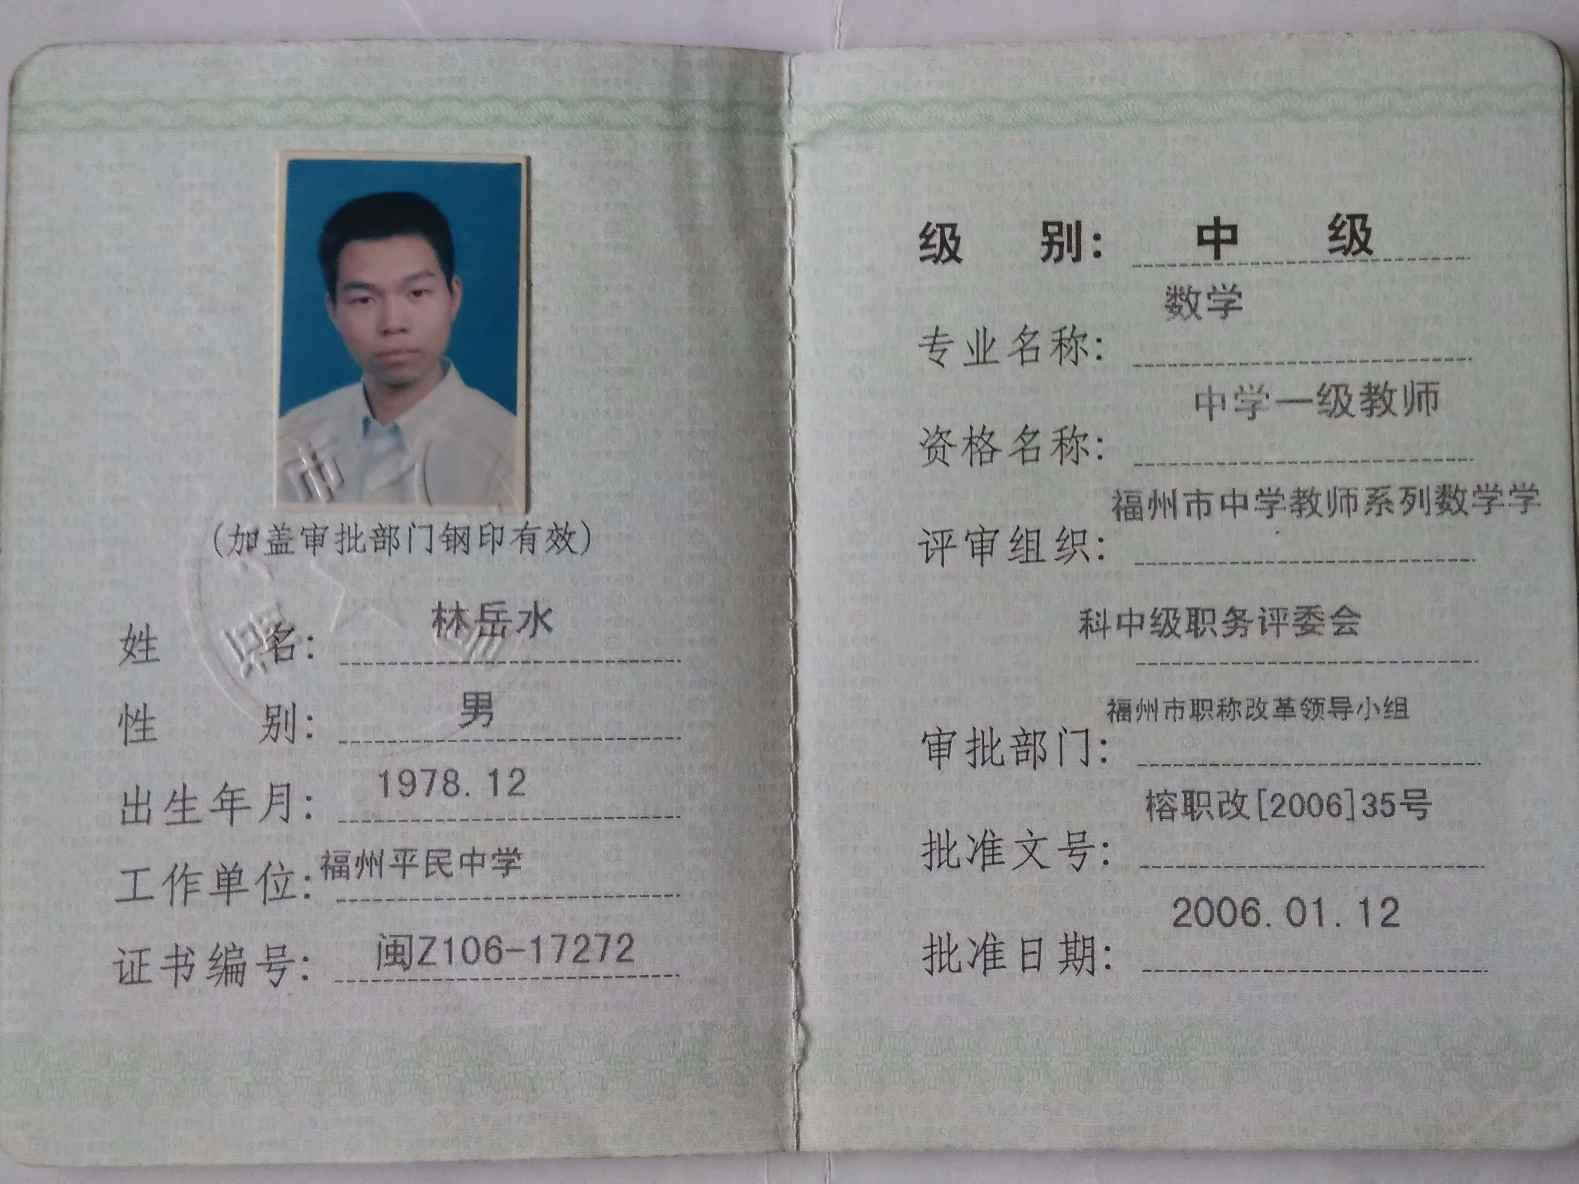 (加盖审批部门钢印有效)
姓名: 林岳水
性别: 男
出生年月: 1978.12
工作单位: 福州平民中学
证书编号: 闽Z106-17272
级别: 中级
专业名称: 数学
资格名称: 中学一级教师
评审组织: 福州市中学教师系列数学学
科中级职务评委会
审批部门: 福州市职称改革领导小组
批准文号: 榕职改[2006]35号
批准日期: 2006.01.12